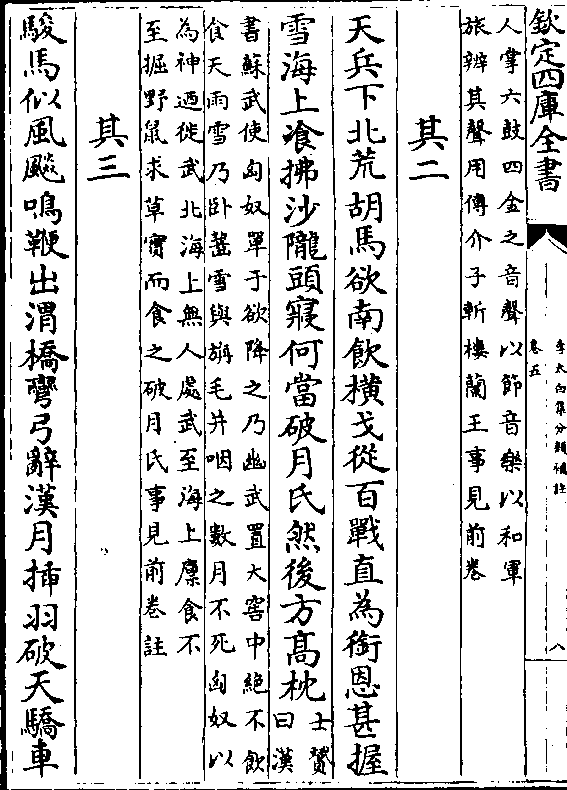 欽定四庫全書
李太白集分類補註
卷五
八
人掌六鼓四金之音聲以節音樂以和軍
旅辨其聲用傅介子斬樓蘭王事見前卷
其二
天兵下北荒胡馬欲南飲橫戈從百戰直為銜恩甚握
雪海上飡拂沙隴頭寢何當破月氏然後方髙枕
士贇
曰漢
書蘇武使匈奴單于欲降之乃幽武置大窖中絶不飲
食天雨雪乃卧齧雪與旃毛并咽之數月不死匈奴以
為神廼徙武北海上無人處武至海上廩食不
至掘野鼠求草實而食之破月氏事見前卷註
其三
駿馬似風飈鳴鞭出渭橋彎弓辭漢月挿羽破天驕車